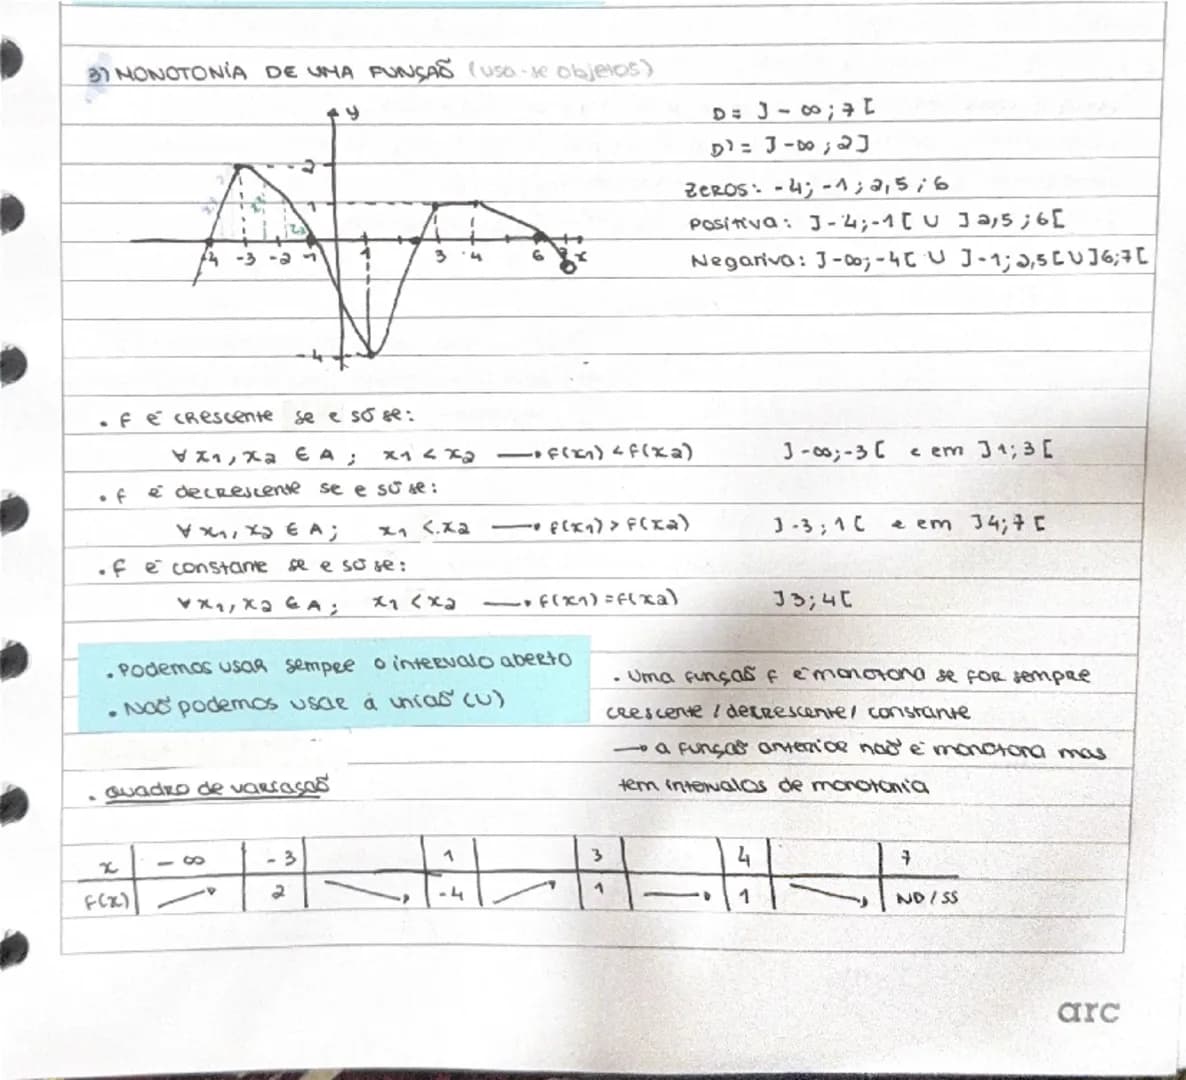 3) MONOTONIA DE UMA FUNÇÃO (usa-se objetos)
y
D = ]-∞; 7[
D' = ]-∞; 2]
Zeros: -4; -1; 2,5; 6
Positiva: ]-4;-1[ U ]2,5;6[
Negativa: ]-∞;-4[ U ]-1;2,5[ U ]6;7[
2
1
-4 -3 -2 -1 1 3 4 6 7 x
-4
. f é crescente se e só se:
∀ x1, x2 ∈ A; x1 < x2 → f(x1) < f(x2) ]-∞;-3[ e em ]1;3[
. f é decrescente se e só se:
∀ x1, x2 ∈ A; x1 < x2 → f(x1) > f(x2) ]-3;1[ e em ]4;7[
. f é constante se e só se:
∀ x1, x2 ∈ A; x1 < x2 → f(x1) = f(x2) ]3;4[
. Podemos usar sempre o intervalo aberto
. Não podemos usar á união (U)
. Uma função f é monotona se for sempre
crescente / decrescente / constante
→ a função anterior não é monotona mas
tem intervalos de monotonia
. quadro de variação
x -∞ -3 1 3 4 7
f(x) ↗ 2 ↘ -4 ↗ 1 → 1 ↘ ND / SS
arc